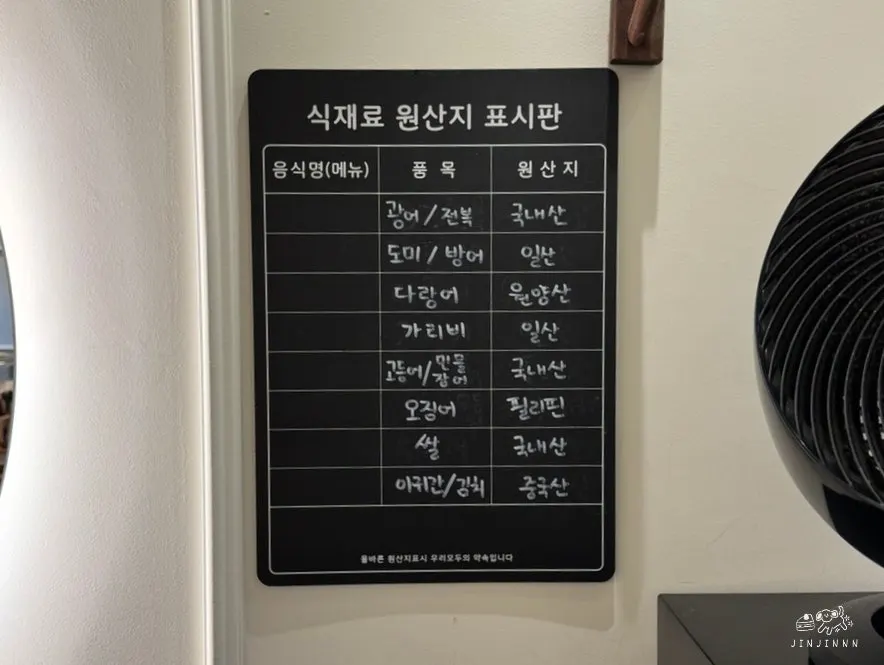 식재료 원산지 표시판
응식명(메뉴) 품 목 원 산 지
광어 / 전복 국내산
도미 / 방어 일산
다랑어 원양산
가리비 일산
고등어/민물장어 국내산
오징어 필리핀
쌀 국내산
아귀간/김치 중국산
올바른 원산지표시 우리모두의 약속입니다
JINJINNN